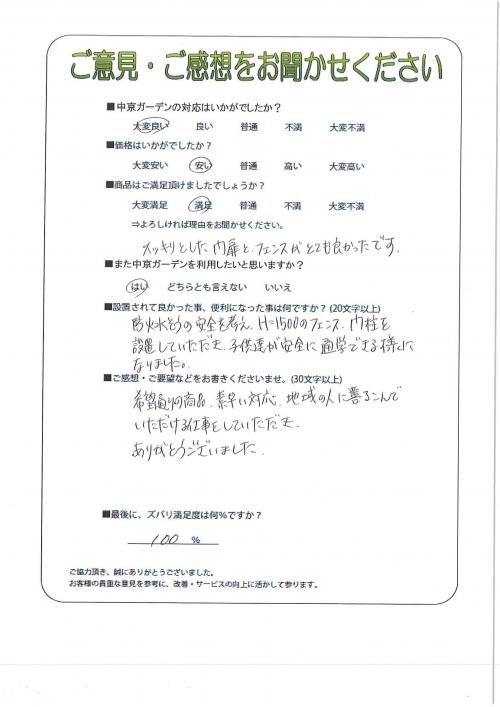 ご意見・ご感想をお聞かせください
■中京ガーデンの対応はいかがでしたか？
大変良い 良い 普通 不満 大変不満
■価格はいかがでしたか？
大変安い 安い 普通 高い 大変高い
■商品はご満足頂けましたでしょうか？
大変満足 満足 普通 不満 大変不満
⇒よろしければ理由をお聞かせください。
スッキリとした門扉と、フェンスがとても良かったです。
■また中京ガーデンを利用したいと思いますか？
はい どちらとも言えない いいえ
■設置されて良かった事、便利になった事は何ですか？(20文字以上)
防火水そうの安全を考え、H=1500のフェンス、門柱を
設置していただき、子供達が安全に通学できる様に
なりました。
■ご感想・ご要望などをお書きくださいませ。(30文字以上)
希望通りの商品、素早い対応、地域の人に喜こんで
いただける仕事をしていただき、
ありがとうございました。
■最後に、ズバリ満足度は何％ですか？
100 ％
ご協力頂き、誠にありがとうございました。
お客様の貴重な意見を参考に、改善・サービスの向上に活かして参ります。